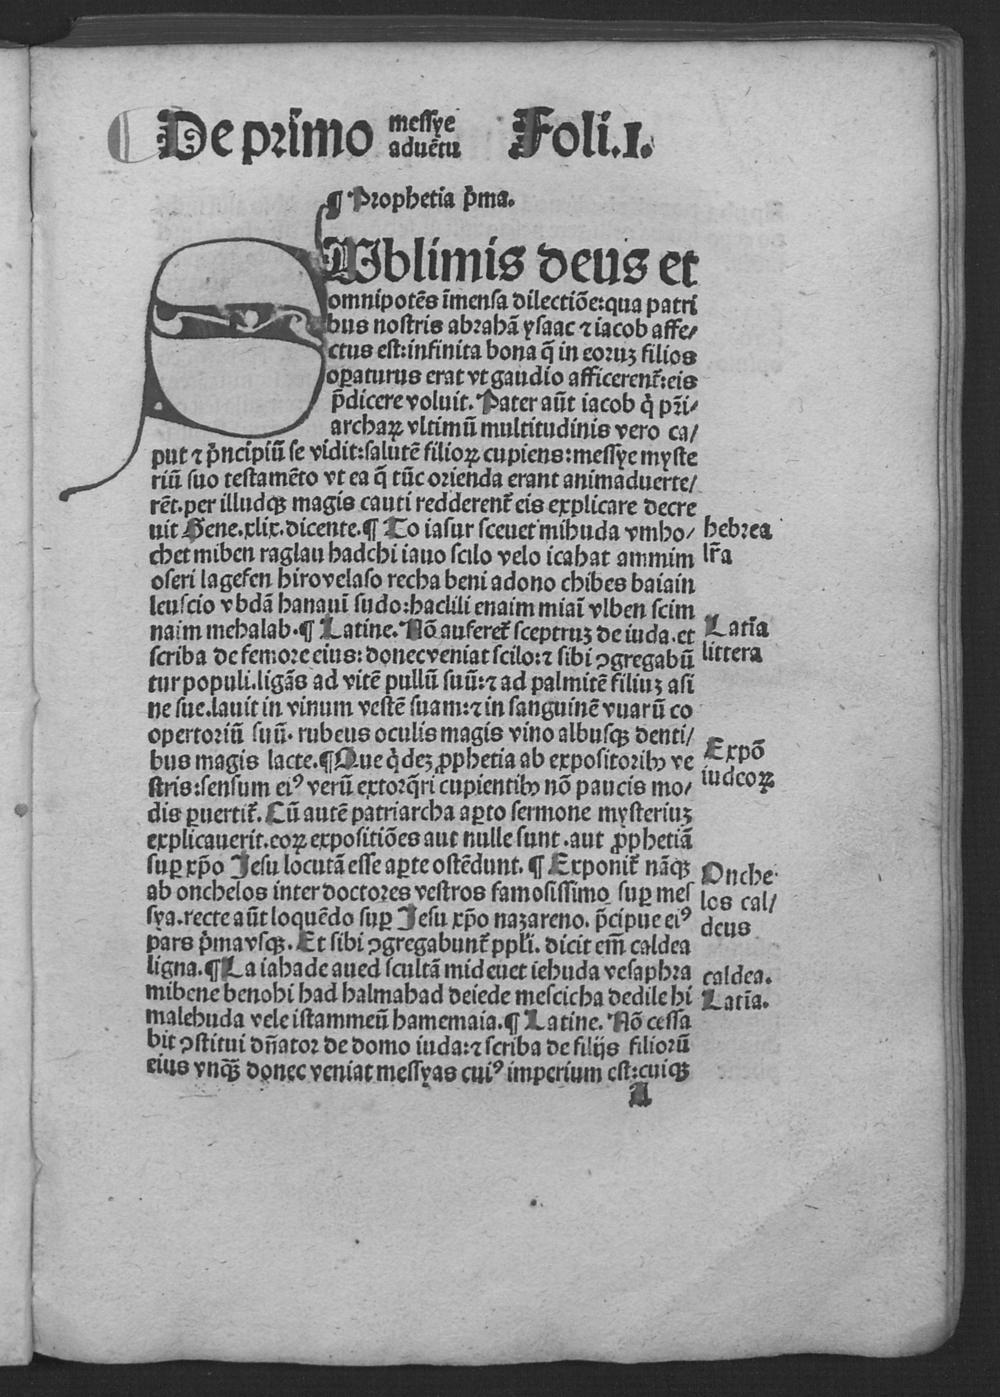 De primo messye aduētu Foli.I.
¶ Prophetia p̄ma.
SUblimis deus et
omnipotēs īmensa dilectiōe:qua patri
bus nostris abrahā ysaac ⁊ iacob affe/
ctus est:infinita bona q̄ in eoruꝫ filios
oꝑaturus erat vt gaudio afficerent̄:eis
p̄dicere voluit. Pater aūt iacob q̇ pr̄i/
archaꝝ vltimū multitudinis vero ca/
put ⁊ p̄ncipiū se vidit:salutē filioꝝ cupiens:messye myste
riū suo testamēto vt ea q̄ tūc orienda erant animaduerte/
rēt.per illudqꝫ magis cauti redderent̄ eis explicare decre
uit Gene.xlix.dicente.¶ Lo iasur sceuet mihuda vmho/
chet miben raglau hadchi iauo scilo velo icahat ammim
oseri lagefen hirovelaso recha beni adono chibes baiain
leuscio vbdā hanauī sudo:haclili enaim miaī vlben scim
naim mehalab.¶ Latine. Nō auferet̄ sceptruꝫ de iuda.et
scriba de femore eius:donec veniat scilo:⁊ sibi ꝯgregabū
tur populi.ligās ad vitē pullū suū:⁊ ad palmitē filiuꝫ asi
ne sue.lauit in vinum vestē suam:⁊ in sanguinē vuarū co
opertoriū suū. rubeus oculis magis vino albusqꝫ denti/
bus magis lacte.¶Que q̇deꝫ ꝓphetia ab expositoribꝰ ve
stris:sensum eiꝰ verū extorq̄ri cupientibꝰ nō paucis mo/
dis ꝑuertit̄. Cū autē patriarcha aꝑto sermone mysteriuꝫ
explicauerit.eoꝝ expositiōes aut nulle sunt.aut ꝓphetiā
suꝑ xp̄o Jesu locutā esse aꝑte ostēdunt. ¶ Exponit̄ nāqꝫ
ab onchelos inter doctores vestros famosissimo suꝑ mes
sya.recte aūt loquēdo suꝑ Jesu xp̄o nazareno. p̄cipue eiꝰ
pars p̄ma vsqꝫ. Et sibi ꝯgregabunt̄ ppl̄i. dicit em̄ caldea
ligna.¶La iahade aued scultā mid euet iehuda vesaphra
mibene benohi had halmahad deiede mescicha dedile hi
malehuda vele istammeū hamemaia.¶ Latine. Nō cessa
bit ꝯstitui dn̄ator de domo iuda:⁊ scriba de filijs filiorū
eius vnqꝫ donec veniat messyas cuiꝰ imperium est:cuiqꝫ
A
hebrea
lr̄a
Latīa
littera
Expō
iudeoꝝ
Onche
los cal/
deus
caldea.
Latīa.